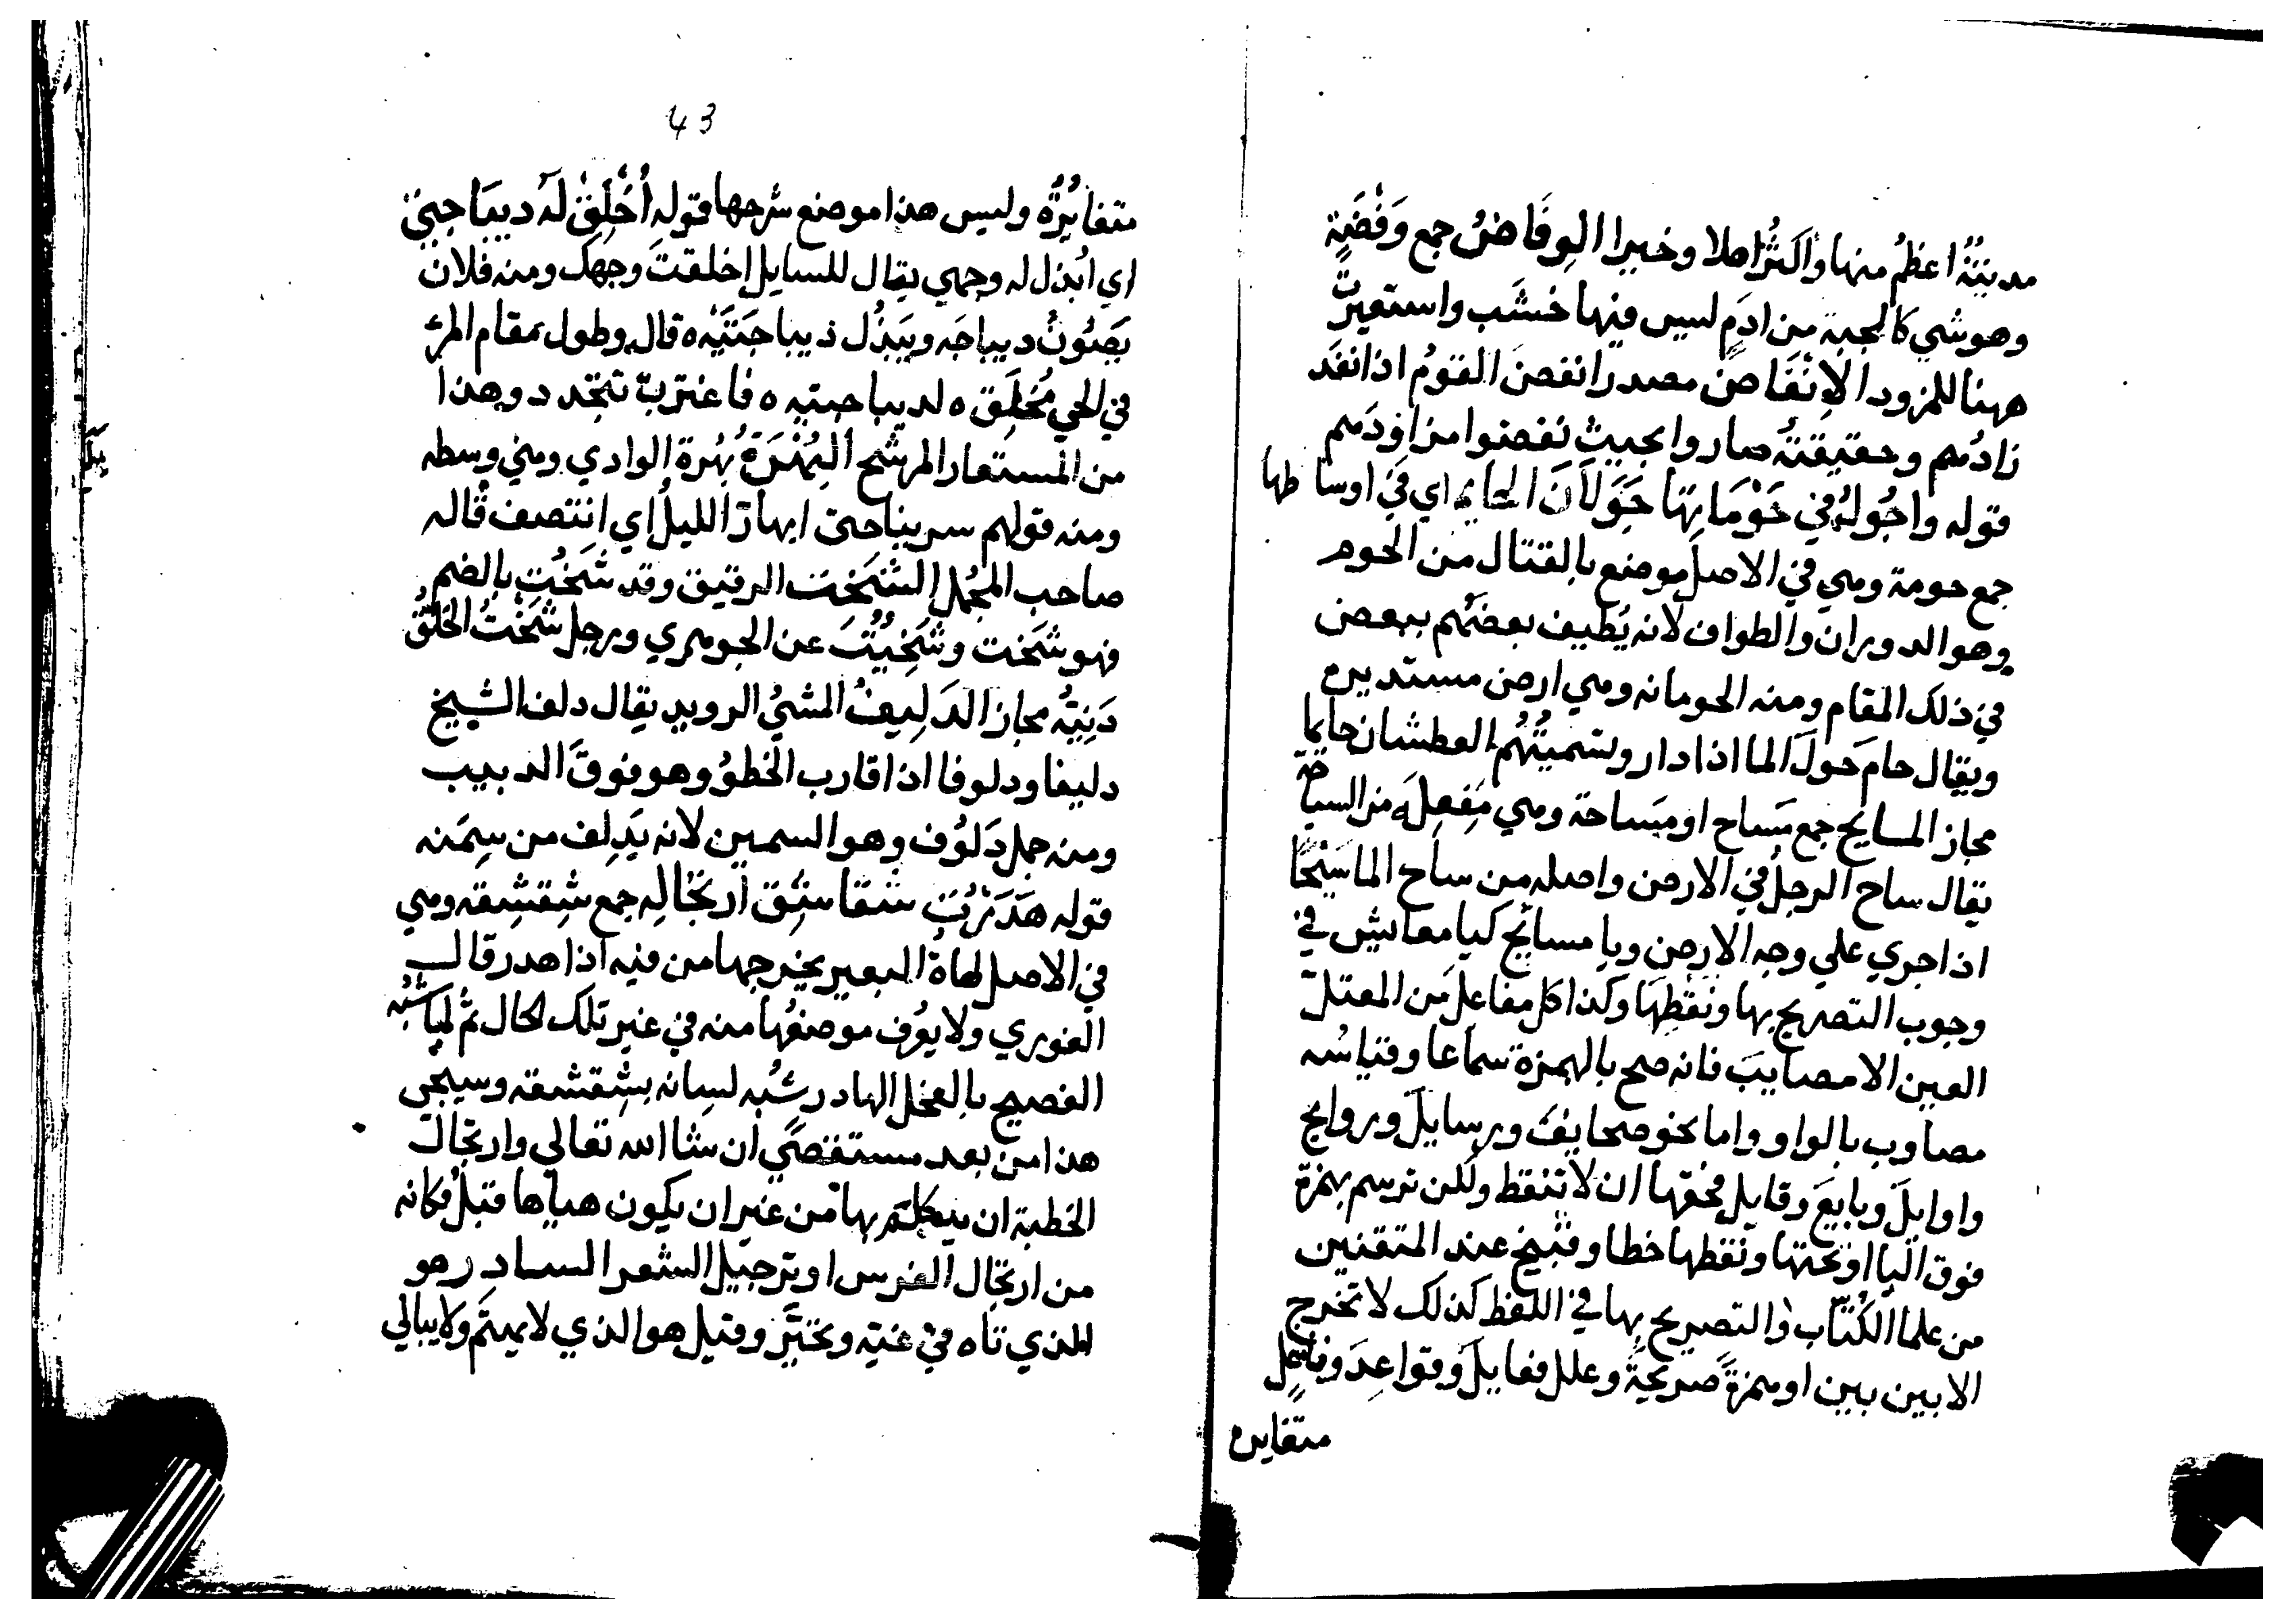 مدينة اعظم منها واكثر اهلا وخيرا الوفاض جمع وفضة
وهو شي كالجعبة من ادم ليس فيها خشب واستعيرت
ههنا للمزود الانفاض مصدر انفض القوم اذا نفد
زادهم وحقيقته صاروا بحيث نفضوا مزاودهم
قوله واجول في حوماتها جولان الحايم اي في اوساطها
جمع حومة وهي في الاصل موضع بالقتال من الحوم
وهو الدوران والطواف لانه يطيف بعضهم ببعض
في ذلك المقام ومنه الحومانه وهي ارض مستديره
ويقال حام حول الما اذا دار وتسميتهم العطشان حايما
مجاز المسايح جمع مساح او مساحة وهي مفعلة من السياحة
يقال ساح الرجل في الارض واصله من ساح الما سيحا
اذا جري علي وجه الارض ويا مسايح كيا معايش في
وجوب التصريح بها ونقطها وكذا كل مفاعل من المعتل
العين الا مصايب فانه صح بالهمزة سماعا وقياسه
مصاوب بالواو واما نحو صحايف ورسايل وروايح
واوايل وبايع وقايل فحقها ان لا تنقط ولكن ترسم بهمزة
فوق اليا او تحتها ونقطها خطا وقبيح عند المتقنين
من علما الكتاب والتصريح بها في اللفظ كذلك لا تخرج
الا بين بين او همزة صريحة وعلل فعايل وقواعد وفاعل
متغايره
43
متغايرة وليس هذا موضع شرحها قوله اخلق له ديباجتي
اي ابذل له وجهي يقال للسايل اخلقت وجهك ومنه فلان
يصون ديباجه ويبذل ديباجتيه ه قال وطول مقام المرء
في الحي مخلق ه لديباجتيه ه فاغترب تتجدد وهذا
من المستعار المرشح البهرة بهرة الوادي وهي وسطه
ومنه قولهم سرينا حتى ابهار الليل اي انتصف قاله
صاحب المجمل الشخت الرقيق وقد شخت بالضم
فهو شخت وشخيت عن الجوهري ورجل شخت الخلق
دنيه مجاز الدليف المشي الرويد يقال دلف الشيخ
دليفا ودلوفا اذا قارب الخطو وهو فوق الدبيب
ومنه جمل دلوف وهو السمين لانه يدلف من سمنه
قوله هدرت شقاشق ارتجاله جمع شقشقه وهي
في الاصل لهاة البعير يخرجها من فيه اذا هدر قال
الغوري ولا يعرف موضعها منه في غير تلك الحال ثم لما شبه
الفصيح بالفحل الهادر شبه لسانه بشقشقه وسيجي
هذا من بعد مستقصي ان شا الله تعالي وارتجال
الخطبة ان يتكلم بها من غير ان يكون هياها قبل فكانه
من ارتجال الفرس او ترجيل الشعر السادر هو
الذي تاه في غيه وتحير وقيل هو الذي لا يهتم ولا يبالي